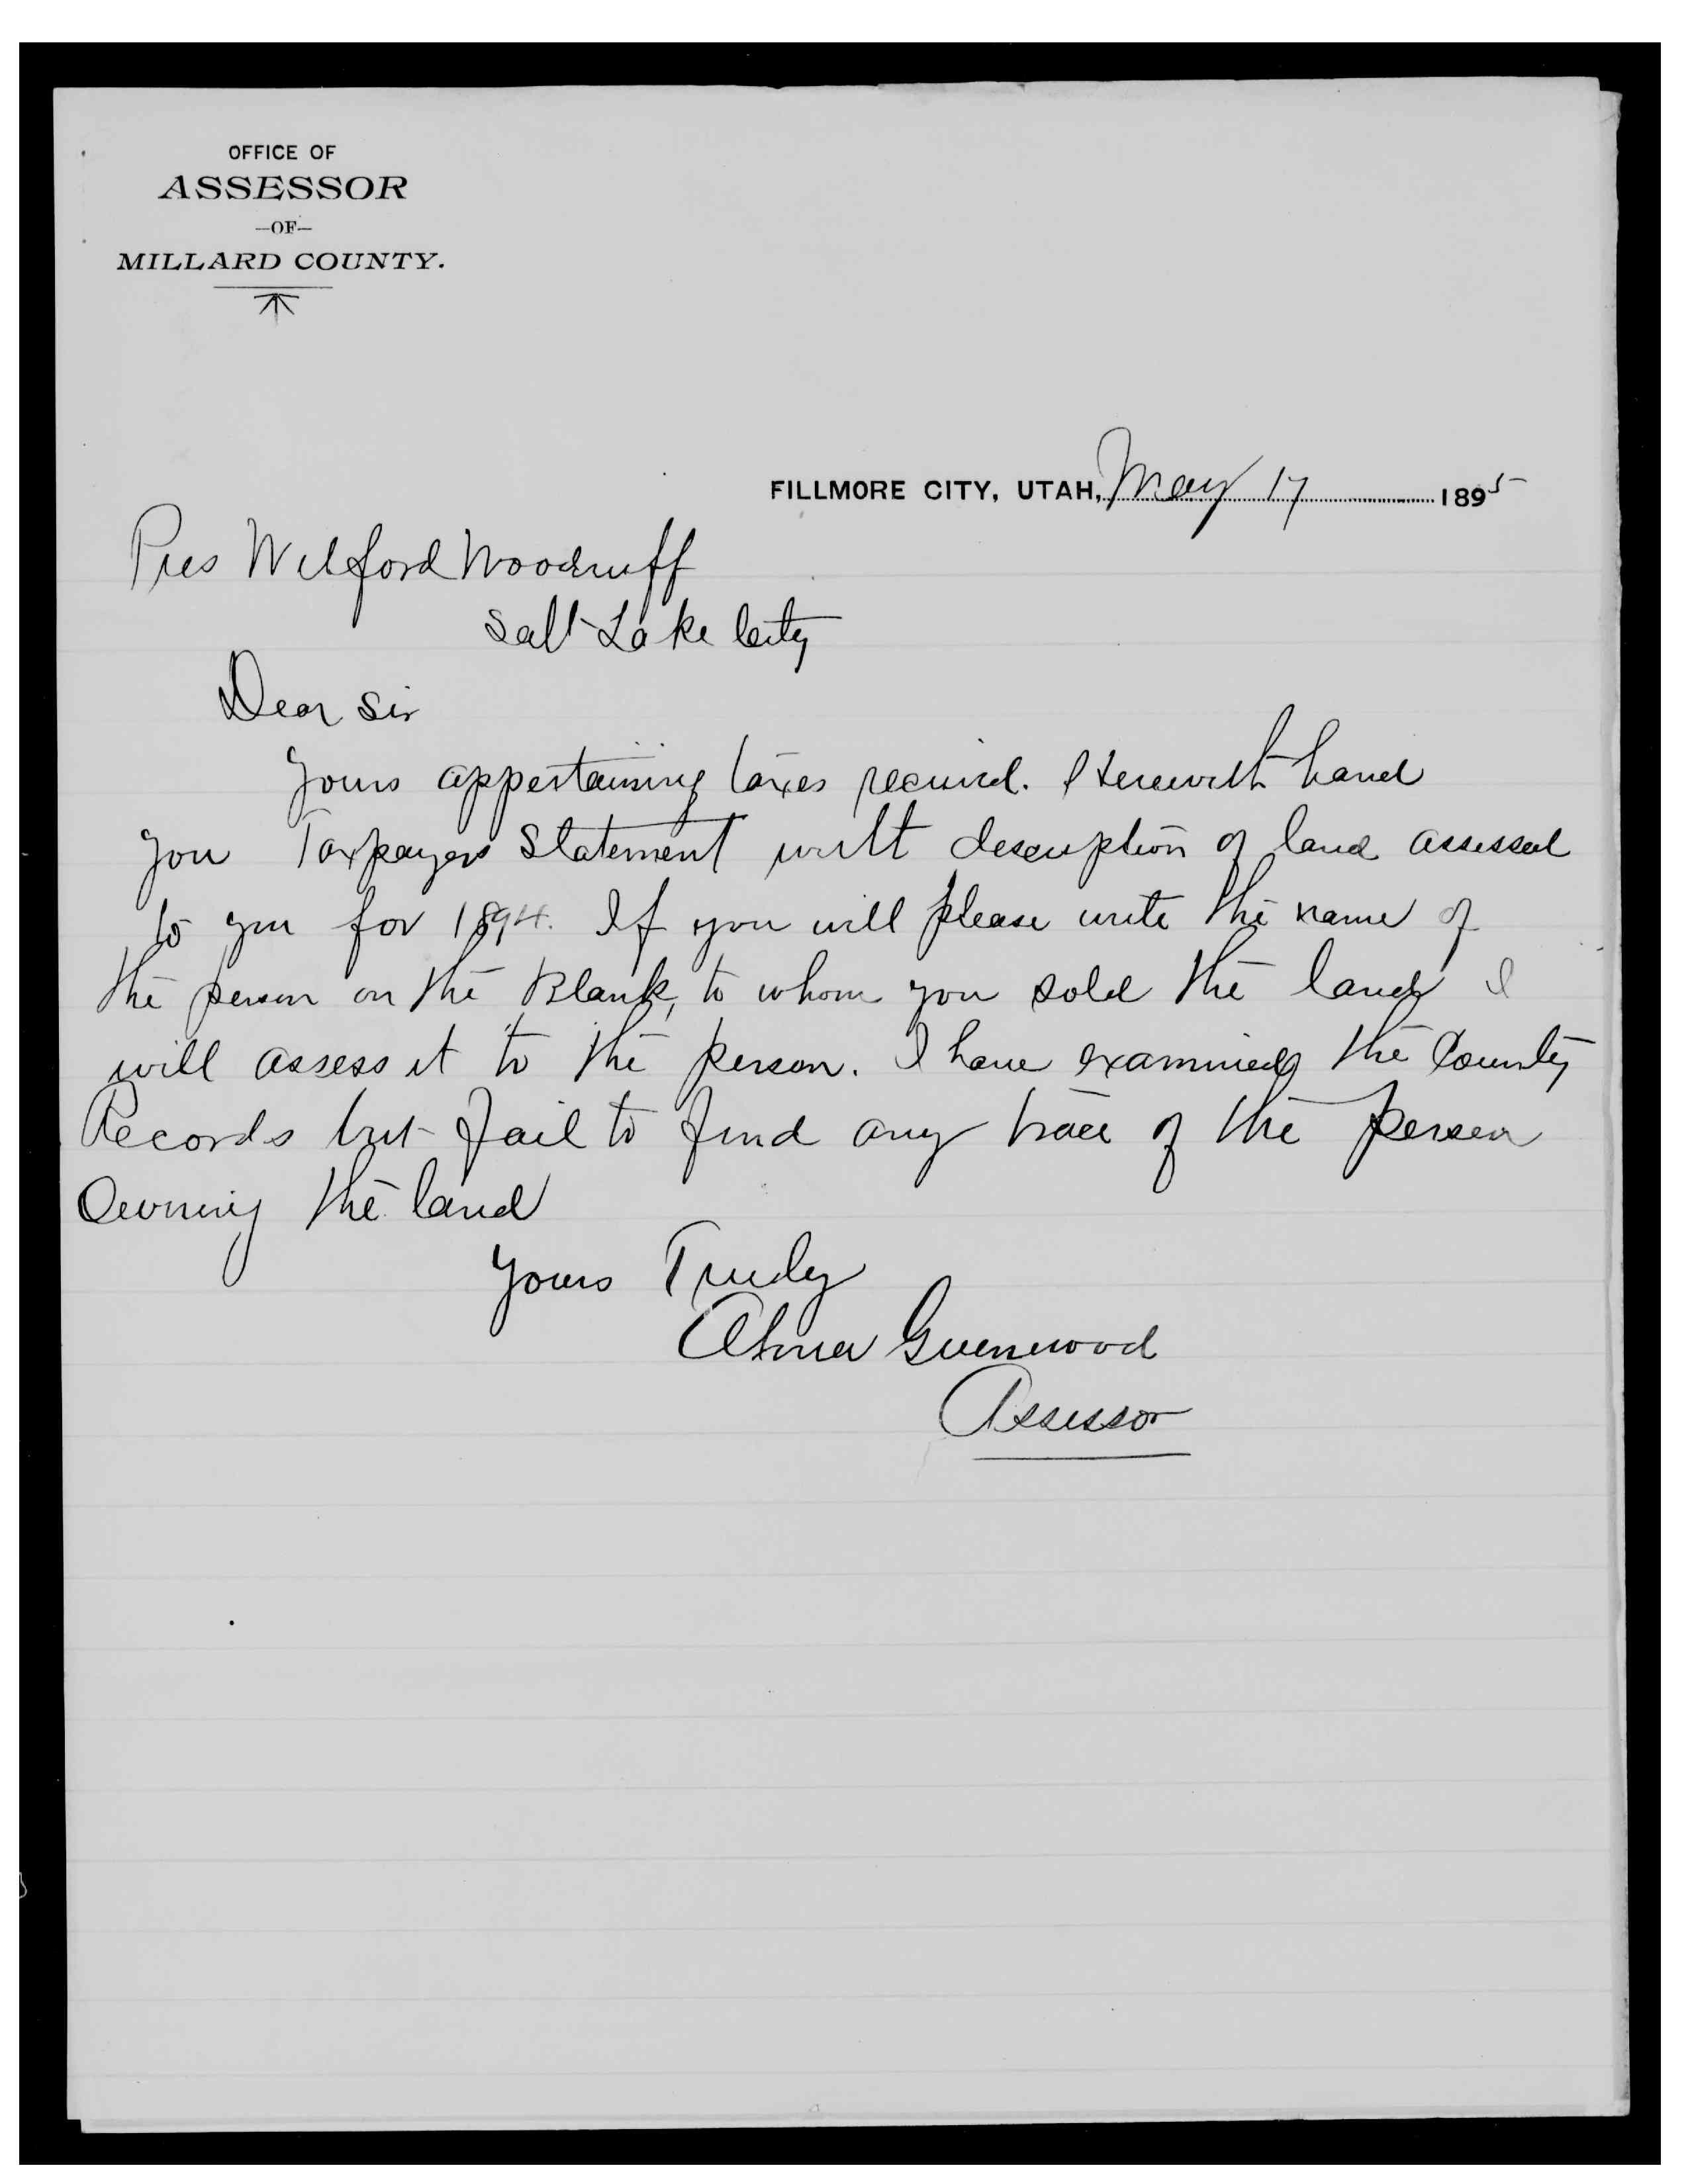 OFFICE OF
ASSESSOR
—OF—
MILLARD COUNTY.
FILLMORE CITY, UTAH, May 17 1895
Pres Wilford Woodruff
Salt Lake City
Dear Sir
Yours appertaining taxes received. I herewith hand
you Taxpayers Statement with description of land assessed
to you for 1894. If you will please write the name of
the person on the Blank, to whom you sold the land I
will assess it to the person. I have examined the County
Records but fail to find any trace of the person
Owning the land
Yours Truly
Alma Greenwood
Assessor